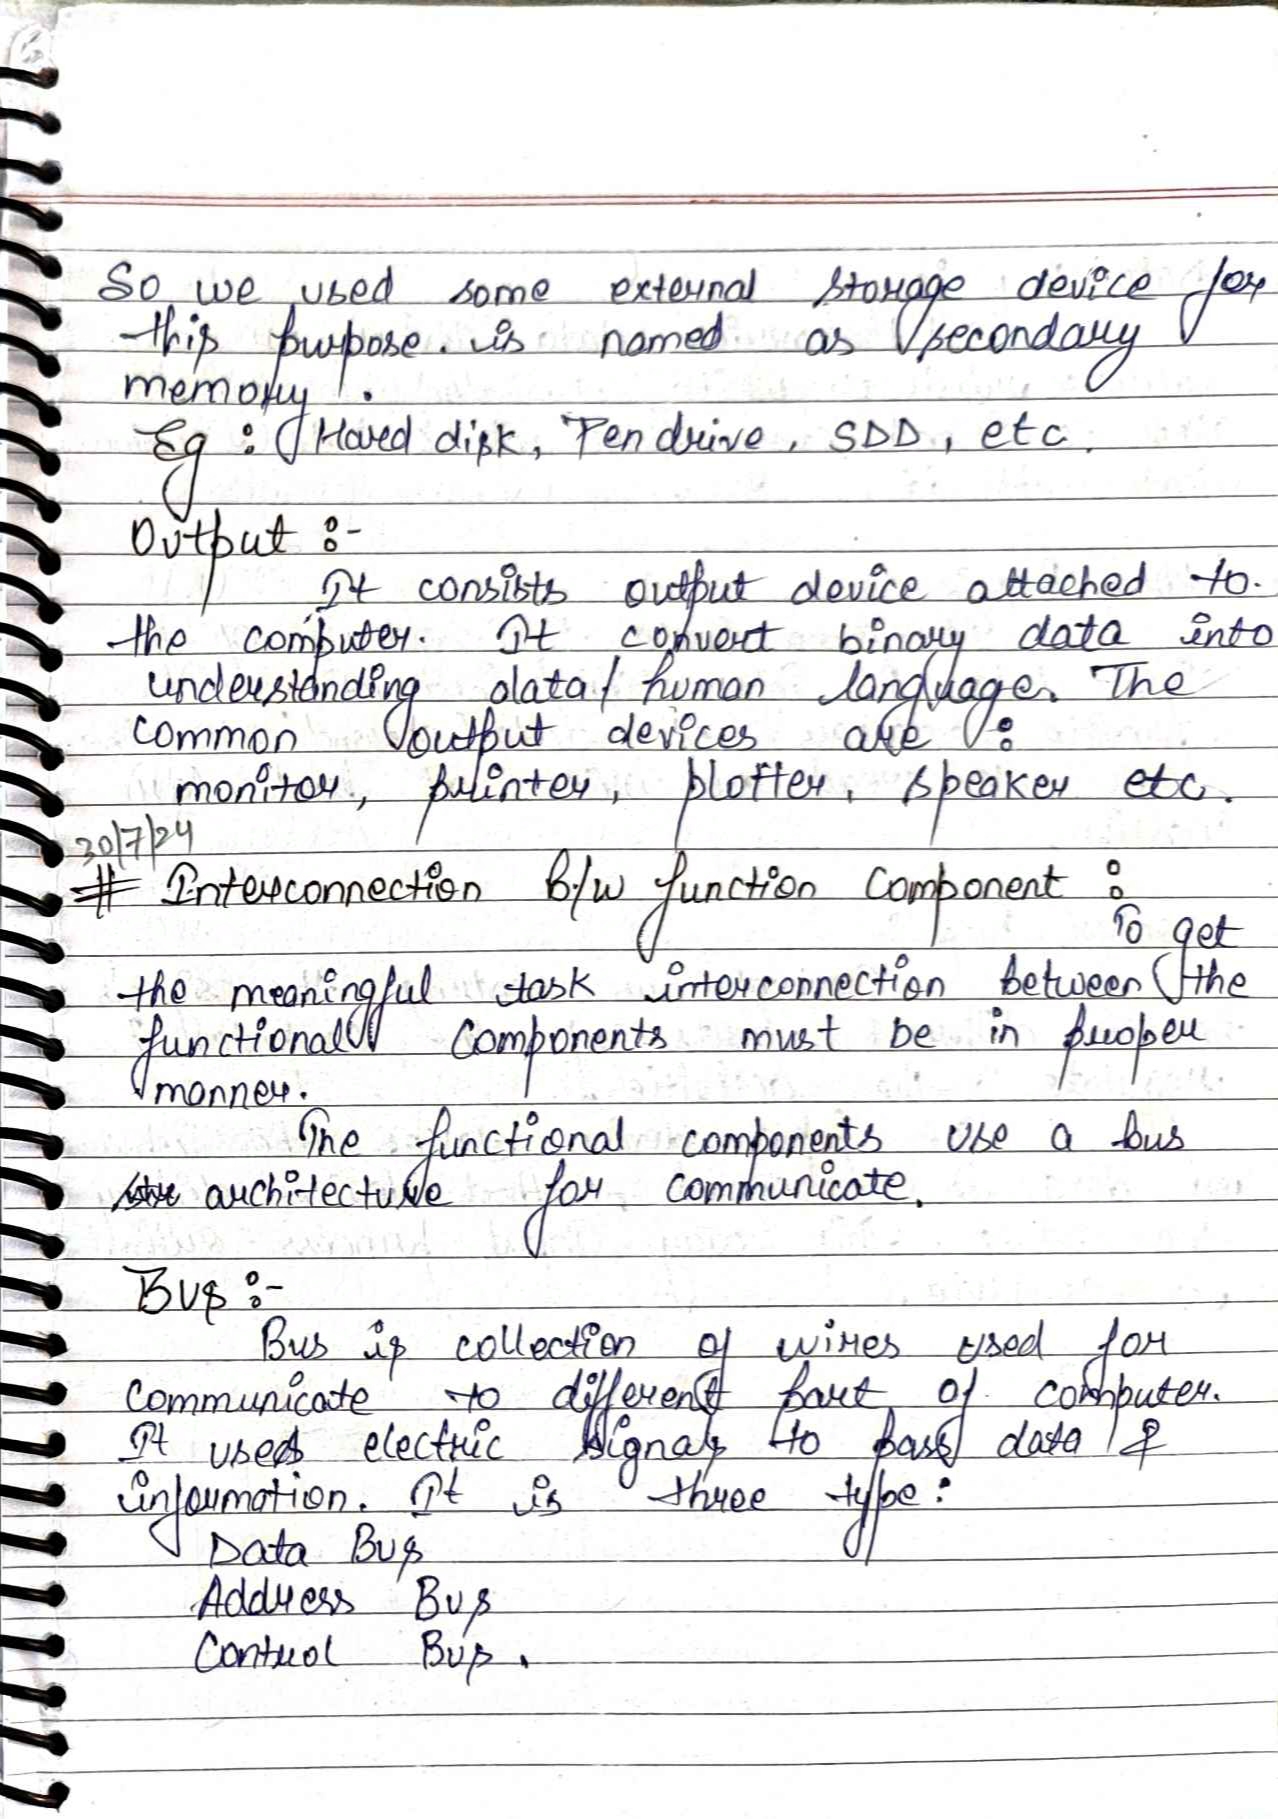 So we used some external storage device for
this purpose. is named as secondary
memory.
Eg : Hard disk, Pen drive, SDD, etc.
Output :-
It consists output device attached to.
the computer. It convert binary data into
understanding data/ human language. The
common output devices are :
monitor, printer, plotter, speaker etc.
30/7/24
# Interconnection B/w function Component :
To get
the meaningful task interconnection between the
functional components must be in proper
manner.
The functional components use a bus
architecture for communicate.
Bus :-
Bus is collection of wires used for
communicate to different part of computer.
It uses electric signals to pass data &
information. It is three type :
Data Bus
Address Bus
Control Bus.